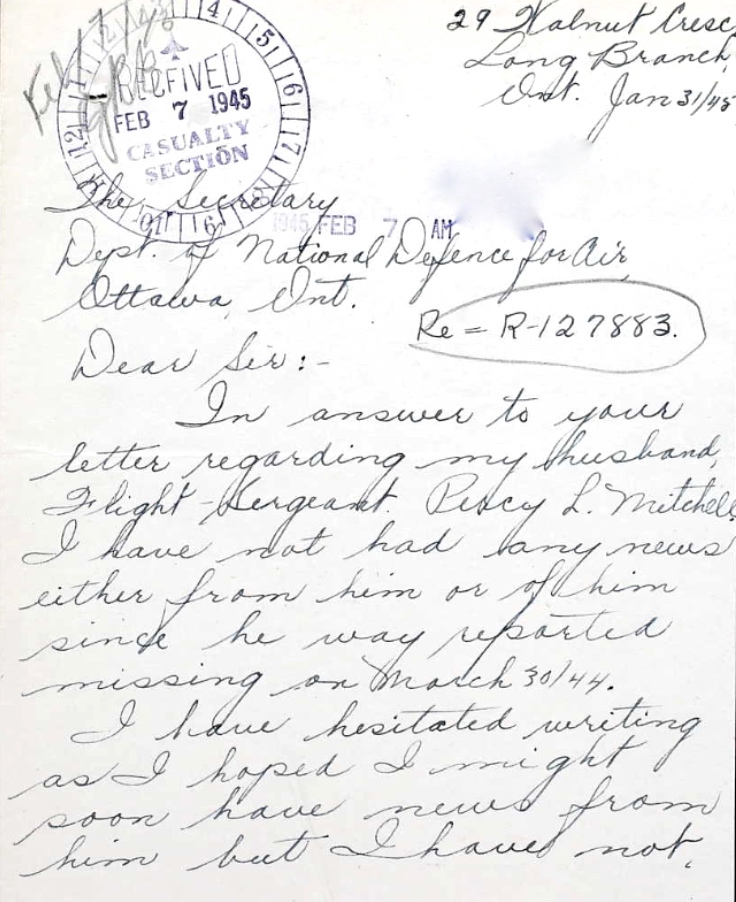 29 Walnut Cresc.
Long Branch,
Ont. Jan 31/45
RECEIVED
FEB 7 1945
CASUALTY
SECTION
The Secretary
1945 FEB 7 AM
Dept. of National Defence for Air,
Ottawa, Ont.
Re = R-127883.
Dear Sir:-
In answer to your
letter regarding my husband,
Flight-Sergeant. Percy L. Mitchell
I have not had any news
either from him or of him
since he way reported
missing on March 30/44.
I have hesitated writing
as I hoped I might
soon have news from
him but I have not.